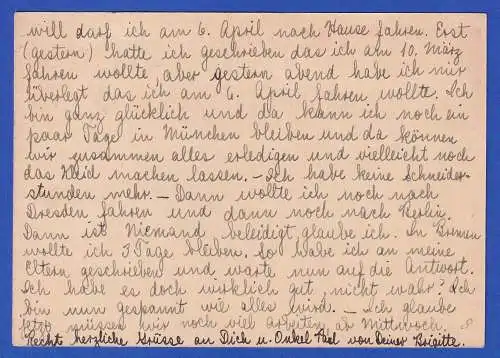 will darf ich am 6. April nach Hause fahren. Erst
(gestern) hatte ich geschrieben das ich am 10. März
fahren wollte, aber gestern abend habe ich mir
überlegt das ich am 6. April fahren wollte. Ich
bin ganz glücklich und da kann ich noch ein
paar Tage in München bleiben und da können
wir zusammen alles erledigen und vielleicht noch
das Kleid machen lassen. – Ich habe keine Schneider-
stunden mehr. – Dann wollte ich noch nach
Dresden fahren und dann noch nach Berlin.
Dann ist Niemand beleidigt glaube ich. In Bremen
wollte ich 3 Tage bleiben. So habe ich an meine
Eltern geschrieben und warte nun auf die Antwort.
Ich habe es doch wirklich gut, nicht wahr? Ich
bin nun gespannt wie alles wird. – Ich glaube
jetzt müssen wir noch viel arbeiten ab Mittwoch.
Recht herzliche Grüsse an Dich u. Onkel Paul von Deiner Brigitte.